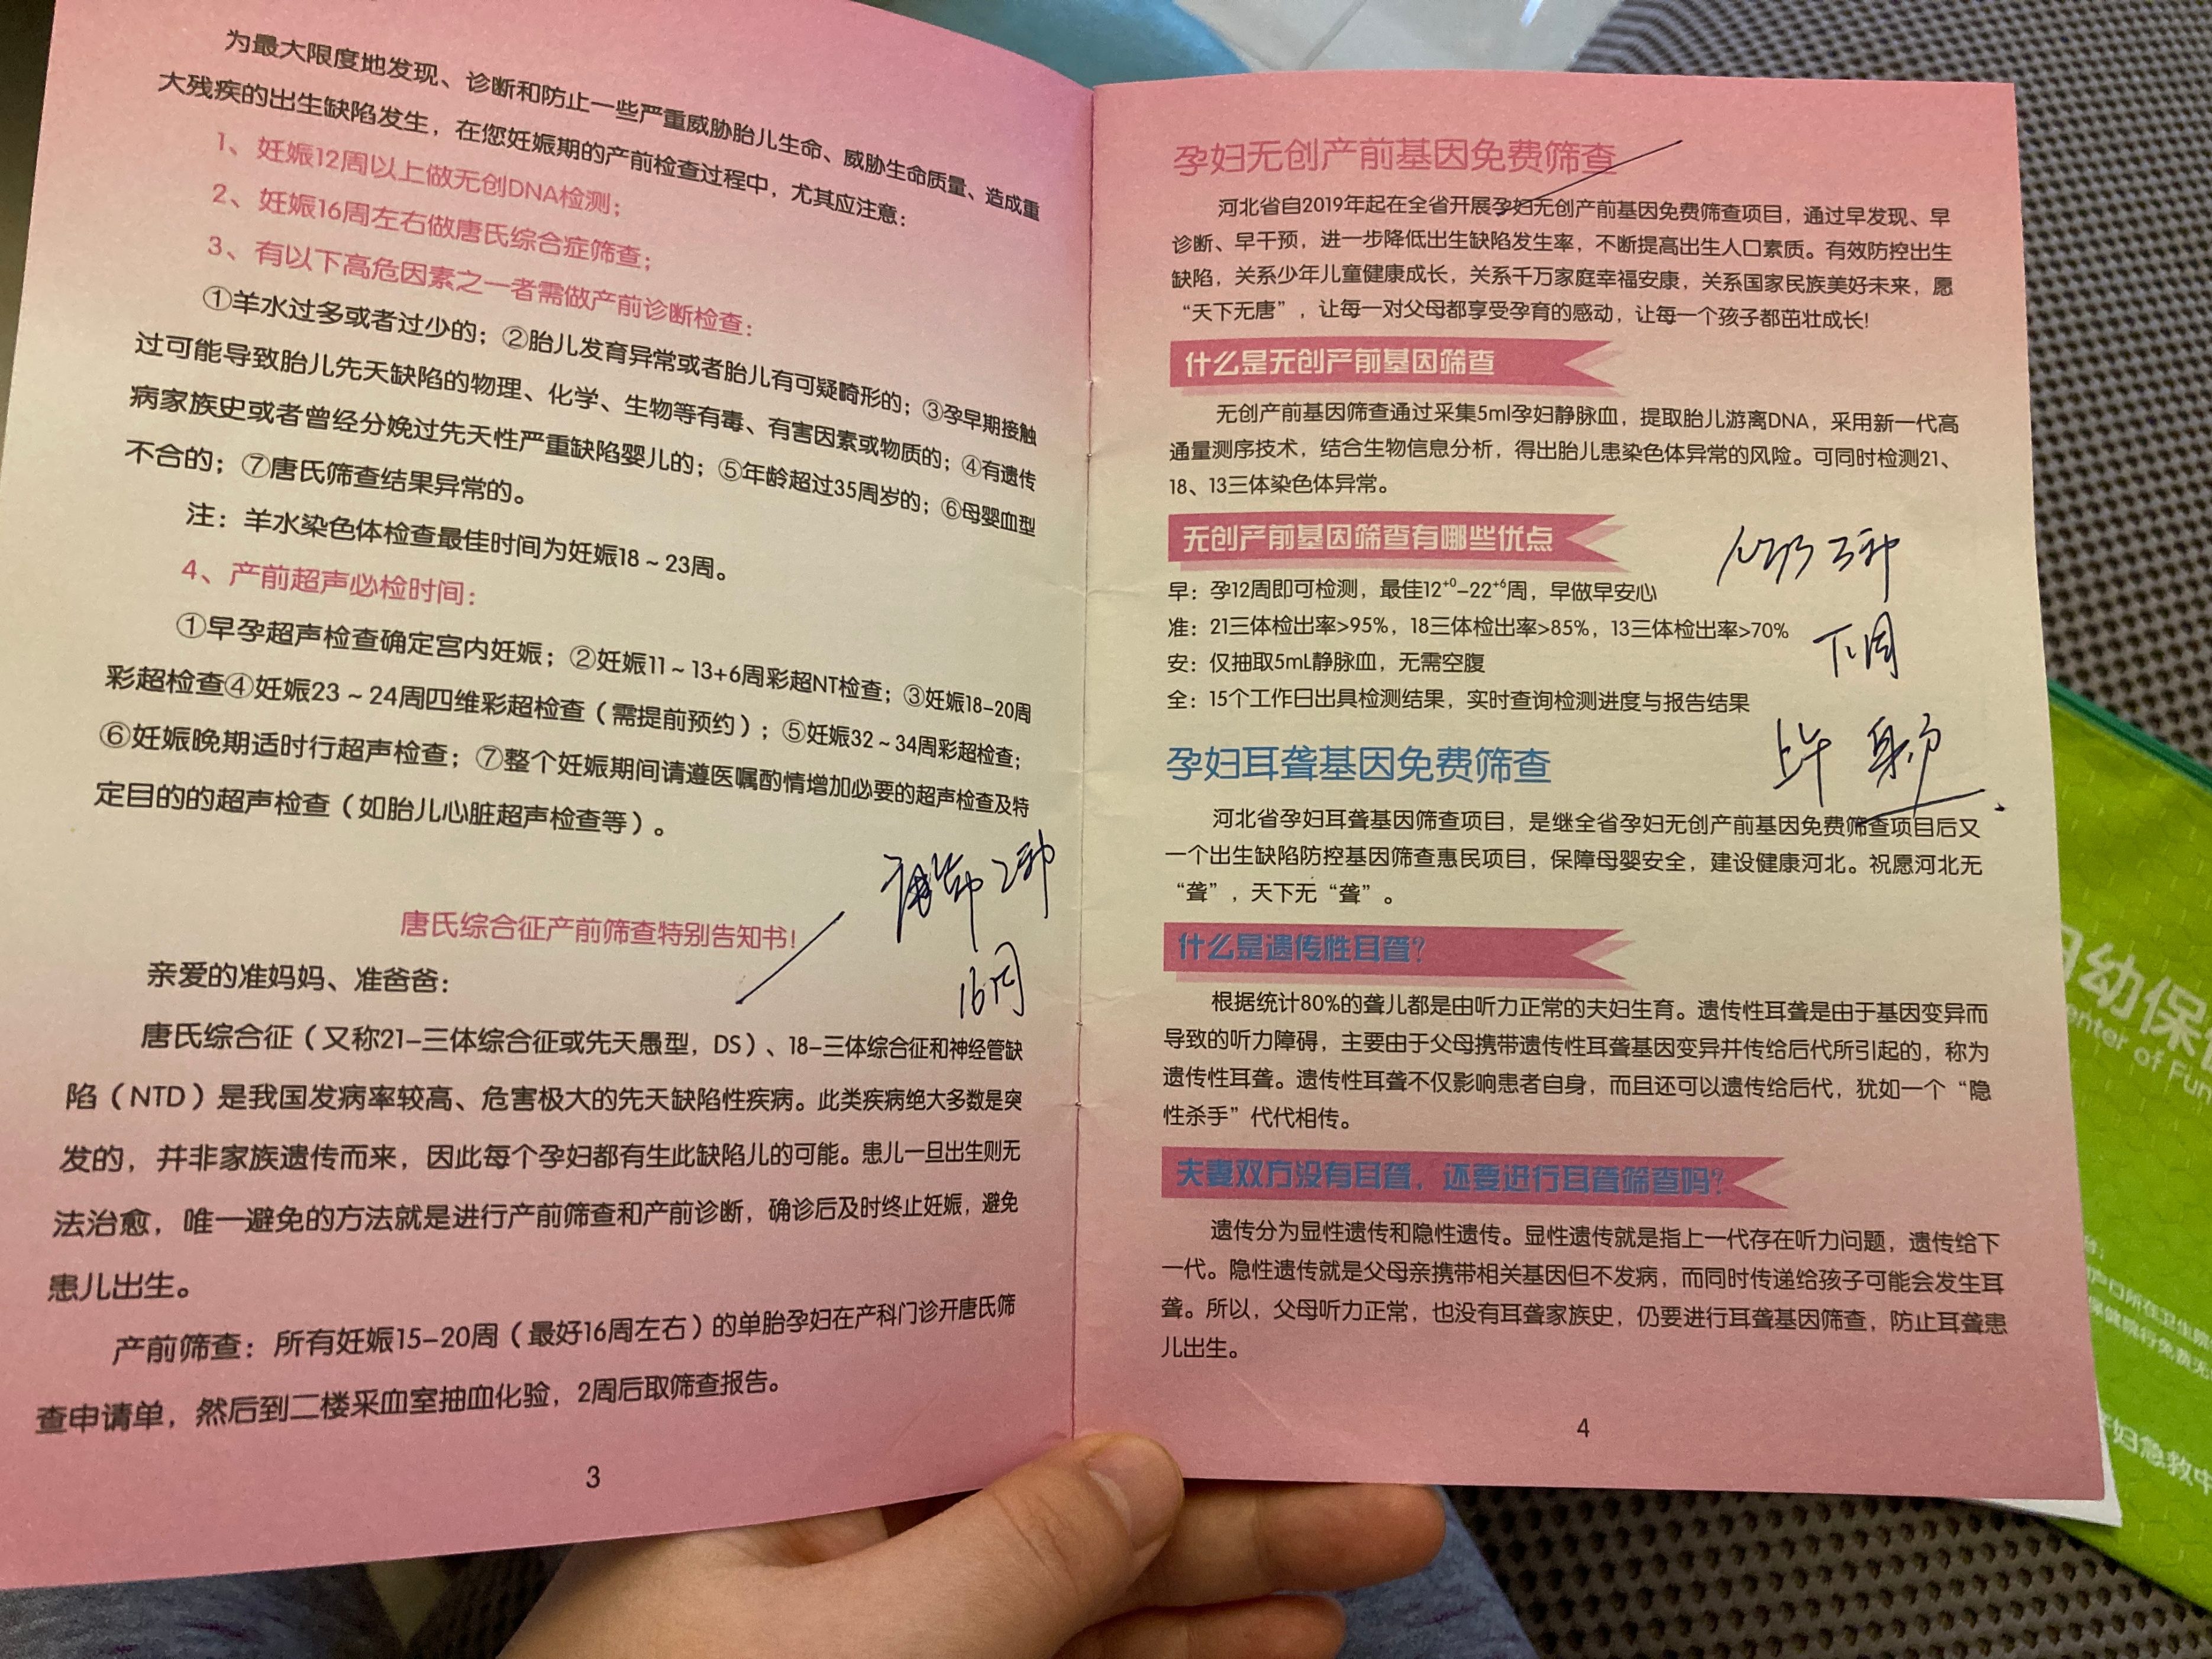 为最大限度地发现、诊断和防止一些严重威胁胎儿生命、威胁生命质量、造成重
大残疾的出生缺陷发生，在您妊娠期的产前检查过程中，尤其应注意：
1、妊娠12周以上做无创DNA检测；
2、妊娠16周左右做唐氏综合症筛查；
3、有以下高危因素之一者需做产前诊断检查：
①羊水过多或者过少的；②胎儿发育异常或者胎儿有可疑畸形的；③孕早期接触
过可能导致胎儿先天缺陷的物理、化学、生物等有毒、有害因素或物质的；④有遗传
病家族史或者曾经分娩过先天性严重缺陷婴儿的；⑤年龄超过35周岁的；⑥母婴血型
不合的；⑦唐氏筛查结果异常的。
注：羊水染色体检查最佳时间为妊娠18～23周。
4、产前超声必检时间：
①早孕超声检查确定宫内妊娠；②妊娠11～13+6周彩超NT检查；③妊娠18-20周
彩超检查④妊娠23～24周四维彩超检查（需提前预约）；⑤妊娠32～34周彩超检查；
⑥妊娠晚期适时行超声检查；⑦整个妊娠期间请遵医嘱酌情增加必要的超声检查及特
定目的的超声检查（如胎儿心脏超声检查等）。
唐筛 2种
16周
唐氏综合征产前筛查特别告知书！
亲爱的准妈妈、准爸爸：
唐氏综合征（又称21-三体综合征或先天愚型，DS）、18-三体综合征和神经管缺
陷（NTD）是我国发病率较高、危害极大的先天缺陷性疾病。此类疾病绝大多数是突
发的，并非家族遗传而来，因此每个孕妇都有生此缺陷儿的可能。患儿一旦出生则无
法治愈，唯一避免的方法就是进行产前筛查和产前诊断，确诊后及时终止妊娠，避免
患儿出生。
产前筛查：所有妊娠15-20周（最好16周左右）的单胎孕妇在产科门诊开唐氏筛
查申请单，然后到二楼采血室抽血化验，2周后取筛查报告。
3
孕妇无创产前基因免费筛查
河北省自2019年起在全省开展孕妇无创产前基因免费筛查项目，通过早发现、早
诊断、早干预，进一步降低出生缺陷发生率，不断提高出生人口素质。有效防控出生
缺陷，关系少年儿童健康成长，关系千万家庭幸福安康，关系国家民族美好未来，愿
“天下无唐”，让每一对父母都享受孕育的感动，让每一个孩子都茁壮成长！
什么是无创产前基因筛查
无创产前基因筛查通过采集5ml孕妇静脉血，提取胎儿游离DNA，采用新一代高
通量测序技术，结合生物信息分析，得出胎儿患染色体异常的风险。可同时检测21、
18、13三体染色体异常。
无创产前基因筛查有哪些优点
3种
早：孕12周即可检测，最佳12+0-22+6周，早做早安心
准：21三体检出率>95%，18三体检出率>85%，13三体检出率>70%
下周
安：仅抽取5mL静脉血，无需空腹
全：15个工作日出具检测结果，实时查询检测进度与报告结果
孕妇耳聋基因免费筛查
河北省孕妇耳聋基因筛查项目，是继全省孕妇无创产前基因免费筛查项目后又
一个出生缺陷防控基因筛查惠民项目，保障母婴安全，建设健康河北。祝愿河北无
“聋”，天下无“聋”。
什么是遗传性耳聋？
根据统计80%的聋儿都是由听力正常的夫妇生育。遗传性耳聋是由于基因变异而
导致的听力障碍，主要由于父母携带遗传性耳聋基因变异并传给后代所引起的，称为
遗传性耳聋。遗传性耳聋不仅影响患者自身，而且还可以遗传给后代，犹如一个“隐
性杀手”代代相传。
夫妻双方没有耳聋，还要进行耳聋筛查吗？
遗传分为显性遗传和隐性遗传。显性遗传就是指上一代存在听力问题，遗传给下
一代。隐性遗传就是父母亲携带相关基因但不发病，而同时传递给孩子可能会发生耳
聋。所以，父母听力正常，也没有耳聋家族史，仍要进行耳聋基因筛查，防止耳聋患
儿出生。
4
幼保
enter of Fun
户口所在卫生
保健院行免费无
妇急救中